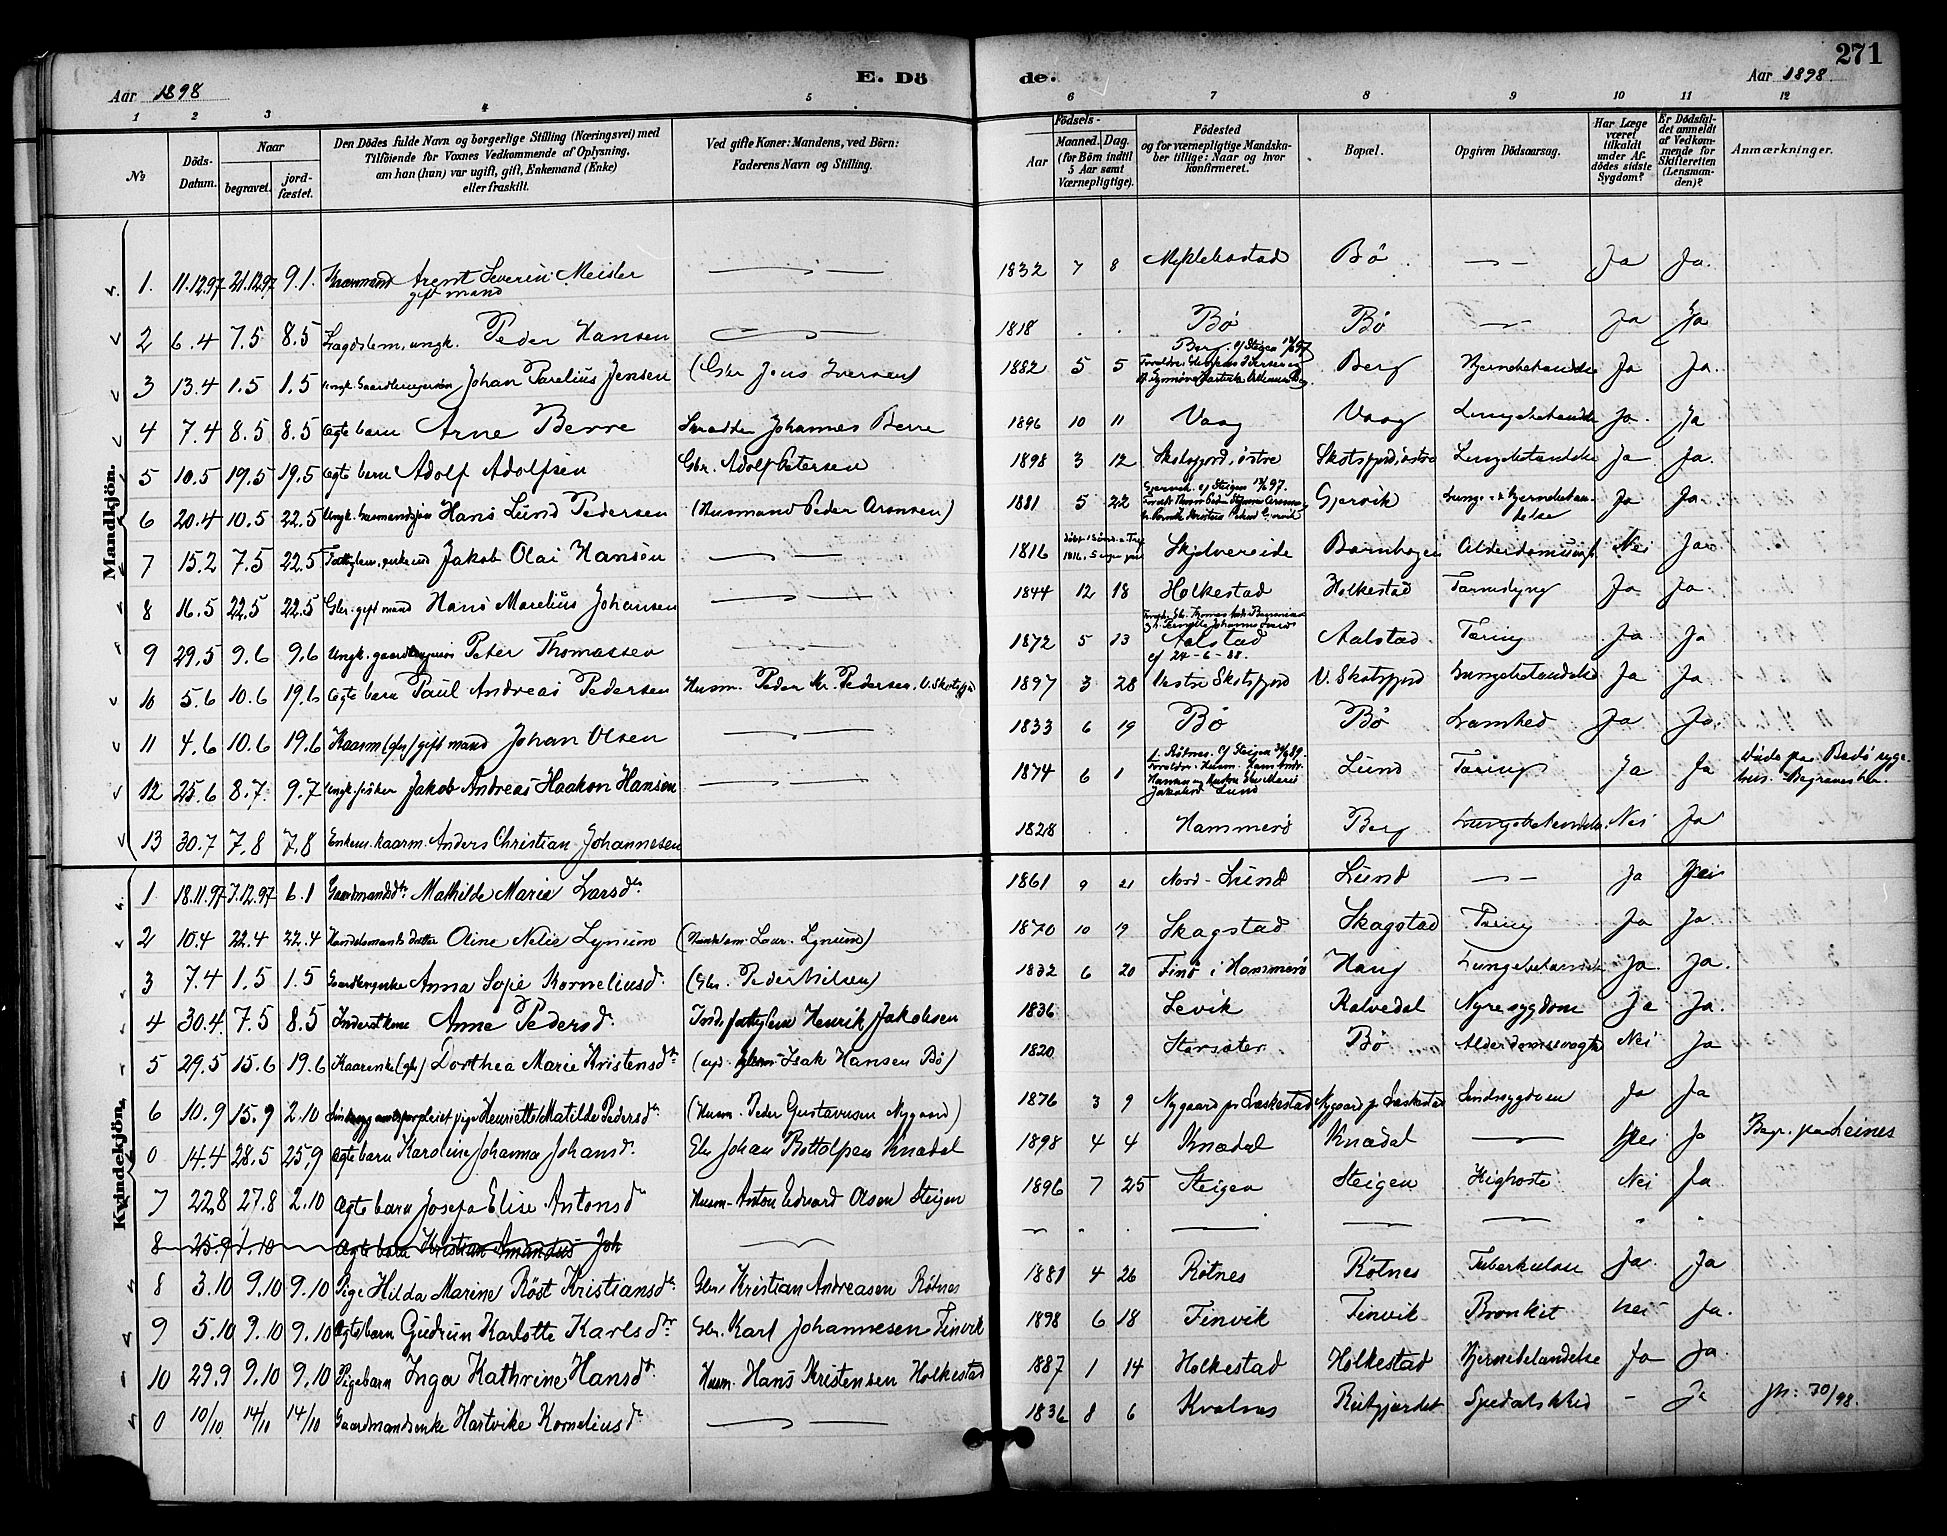 271
E. Dö de.
Aar 1898
Aar 1898
1 2 3 4 5 6 7 8 9 10 11 12
No
Döds-Datum.
Naar
begravet.
jord-fæstet.
Den Dödes fulde Navn og borgerlige Stilling (Næringsvei) med
Tilföiende for Voxnes Vedkommende af Oplysning,
om han (hun) var ugift, gift, Enkemand (Enke)
eller fraskilt.
Ved gifte Koner: Mandens, ved Börn:
Faderens Navn og Stilling.
Födsels-
Aar
Maaned. Dag.
(for Börn indtil
5 Aar samt
Værnepligtige).
Födested
og for værnepligtige Mandska-
ber tillige: Naar og hvor
konfirmeret.
Bopæl.
Opgiven Dödsaarsag.
Har Læge
været
tilkaldt
under Af-
dödes sidste
Sygdom?
Er Dödsfal-
det anmeldt
af Vedkom-
mende for
Skifteretten
(Lensman-
den)?
Anmærkninger.
Mandkjön.
1. 11.12.97 21.12.97 9.1. Arent Severin Meisler gift mand 1832 7 8 Myklebostad Bö Ja Ja.
2 6.4 7.5 8.5 Lægdslem, ungk. Peder Hansen 1818 . . Bö Bö Ja Ja
3 13.4 1.5 1.5 Johan Parelius Jensen (Gbr Jens Iversen) 1882 5 5 Berg. Berg Hjernebetændelse Ja Ja.
4 7.4 8.5 8.5 Ægte barn Arne Berre Skrædder Johannes Berre 1896 10 11 Vaag Vaag Lungebetændelse Ja. Ja
5 10.5 19.5 19.5 Ægte barn Adolf Adolfsen Gbr. Adolf Petersen 1898 3 12 Skotsfjord, østre Skotsfjord, østre Lungebetændelse Ja Ja.
6 20.4 10.5 22.5 Hans Lund Pedersen (Husmand Peder Aronsen) 1881 5 22 Gjervik Lunge- & Hjernebetændelse Ja Ja.
7 15.2 7.5 22.5 Jakob Olai Hansen 1816 Skjelvereide Nei Ja
8 16.5 22.5 22.5 Gbr. gift mand Hans Marelius Johansen 1844 12 18 Holkestad Holkestad Tarmslyng Ja Ja.
9 29.5 9.6 9.6 Ungk. Peter Thomassen 1872 5 13 Aalstad cf 24-6-88. Aalstad Tæring Ja Ja
10 5.6 10.6 19.6 Ægte barn Paul Andreas Pedersen Husm. Peder Kr. Pedersen, V. Skotsfjd 1897 3 28 Vestre Skotsfjord V. Skotsfjord Lungebetændelse Ja Ja
11 4.6 10.6 19.6 Kaarm (gbr) gift mand Johan Olsen 1833 6 19 Bö Bö Lamhed Ja Ja.
12 25.6 8.7. 9.7 Ungk. fisker Jakob Andreas Haakon Hansen 1874 6 1 Lund Tæring Ja Ja Døde paa Bodø syge-
hus. Begravet her.
13 30.7 7.8 7.8 Enkem. kaarm. Anders Christian Johannesen 1828 . . Hammerö Berg Lungebetændelse. Nei Ja
Kvindekjön.
1 18.11.97 7.12.97 6.1 Gaardmandsdtr Mathilde Marie Larsdtr. 1861 9 21 Nord-Lund Lund Ja Nei
2 10.4 22.4 22.4 Handelsmands datter Oline Nelie Lynum (Handelsm. Laur. Lynum) 1870 10 19 Skagstad Skagstad Tæring Ja Ja.
3 7.4 1.5 1.5 Anna Sofie Korneliusd. (Gbr. Peder Nilsen) 1832 6 20 Finö i Hammerö Haug Lungebetændelse Ja. Ja.
4 30.4 7.5 8.5 Inderstkone Anne Pedersd. Henrik Jakobsen 1836 Levik Kalvedal Nyresygdom Ja Ja.
5 29.5 15.6 19.6 Kaarenke (gbr) Dorthea Marie Kristensdtr Isak Hansen Bö) 1820 Storsæter Bö Alderdomssvaghed Nei Ja
6 10.9 15.9 2.10 Henriette Matilde Pedersdtr (Husm. Peder Gustavesen Nygaard) 1876 3 9 Nygaard pr Laskestad Nygaard pr Laskestad Sindssygdom Ja Ja
0 14.4 28.5 25.9 Ægte barn Karoline Johanna Johansd. Johan Bottolfsen Knædal 1898 4 4 Knædal Knædal Nei Ja Begr. paa Leines
7 22.8 27.8 2.10 Ægte barn Josefa Elise Antonsdtr Husm. Anton Edvard Olsen Steigen 1896 7 25 Steigen Steigen Kighoste Nei Ja
8 25.9 1.10 Ægte barn Kristian Amandus Joh
8 3.10 9.10 9.10 Pige Hilda Marine Röst Kristiansdtr Gbr. Kristian Andreasen Rötnes 1881 4 26 Rötnes Rötnes Tuberkulose Ja. Ja
9 5.10 9.10 9.10 Ægte barn Gudrun Karlotte Karlsdtr Gbr. Karl Johannesen Finvik 1898 6 18 Finvik Finvik Bronkit Nei Ja.
10 29.9 9.10 9.10 Pigebarn Inga Kathrine Hansdtr. Husm. Hans Kristensen Holkestad 1887 1 14 Holkestad Holkestad Hjernebetændelse Ja Ja.
0 10/10 14/10 14/10 Gaardmandsenke Hartvike Korneliusdtr 1836 8 6 Kvalnes Spedalskhed - Ja 70/98.